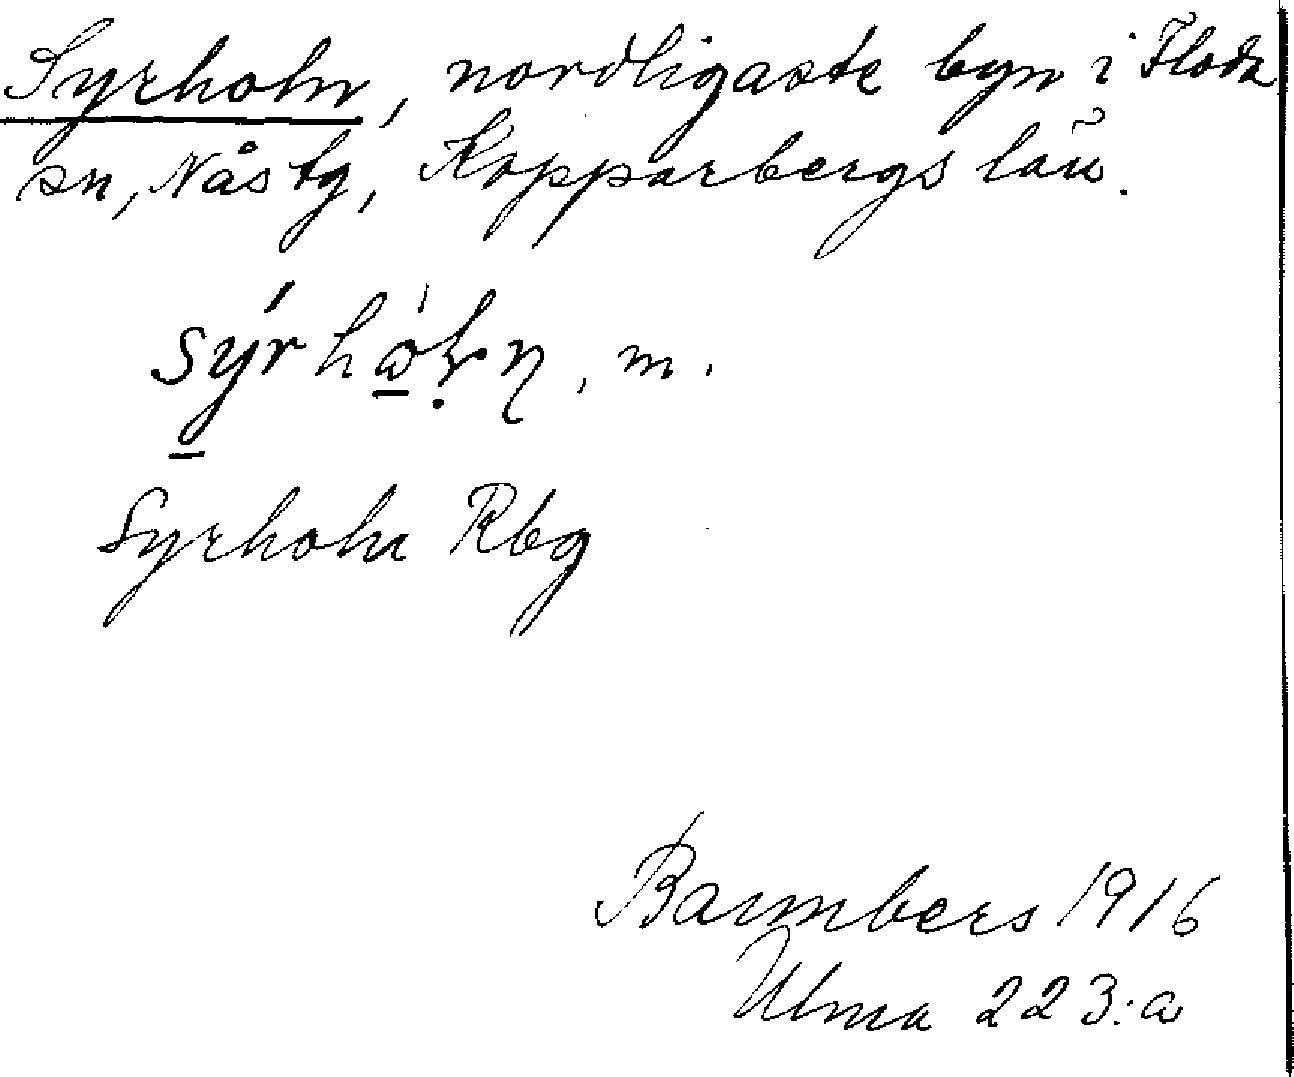 Syrholn, nordligaste byn i Floda
sn, Nås tg, Kopparbergs län.
, m.
Syrholn Rbg
1916
Ulma 223:a